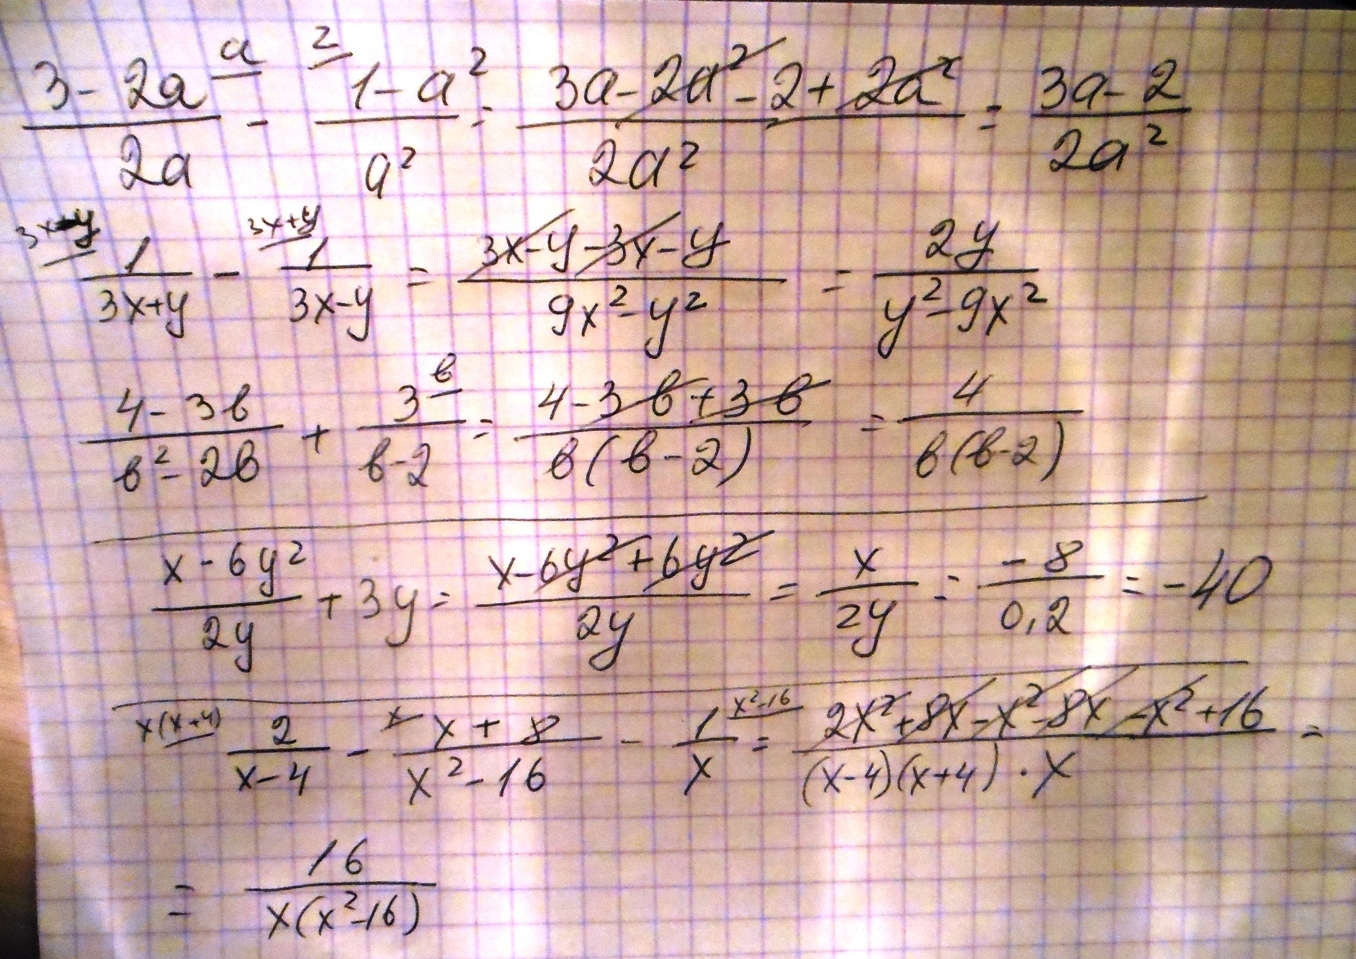 (3 - 2a)/(2a) ^a - ^2 (1 - a²)/(a²) = (3a - 2a² - 2 + 2a²)/(2a²) = (3a - 2)/(2a²)
^(3x-y) 1/(3x+y) - ^(3x+y) 1/(3x-y) = (3x-y-3x-y)/(9x²-y²) = (2y)/(y²-9x²)
(4 - 3в)/(в² - 2в) + 3/(в-2) ^в = (4 - 3в + 3в)/(в(в-2)) = 4/(в(в-2))
(x - 6y²)/(2y) + 3y = (x - 6y² + 6y²)/(2y) = x/(2y) = (-8)/(0,2) = -40
^(x(x+4)) 2/(x-4) - ^x (x + 8)/(x² - 16) - 1/x ^(x²-16) = (2x² + 8x - x² - 8x - x² + 16)/((x-4)(x+4) · x) =
= 16/(x(x²-16))